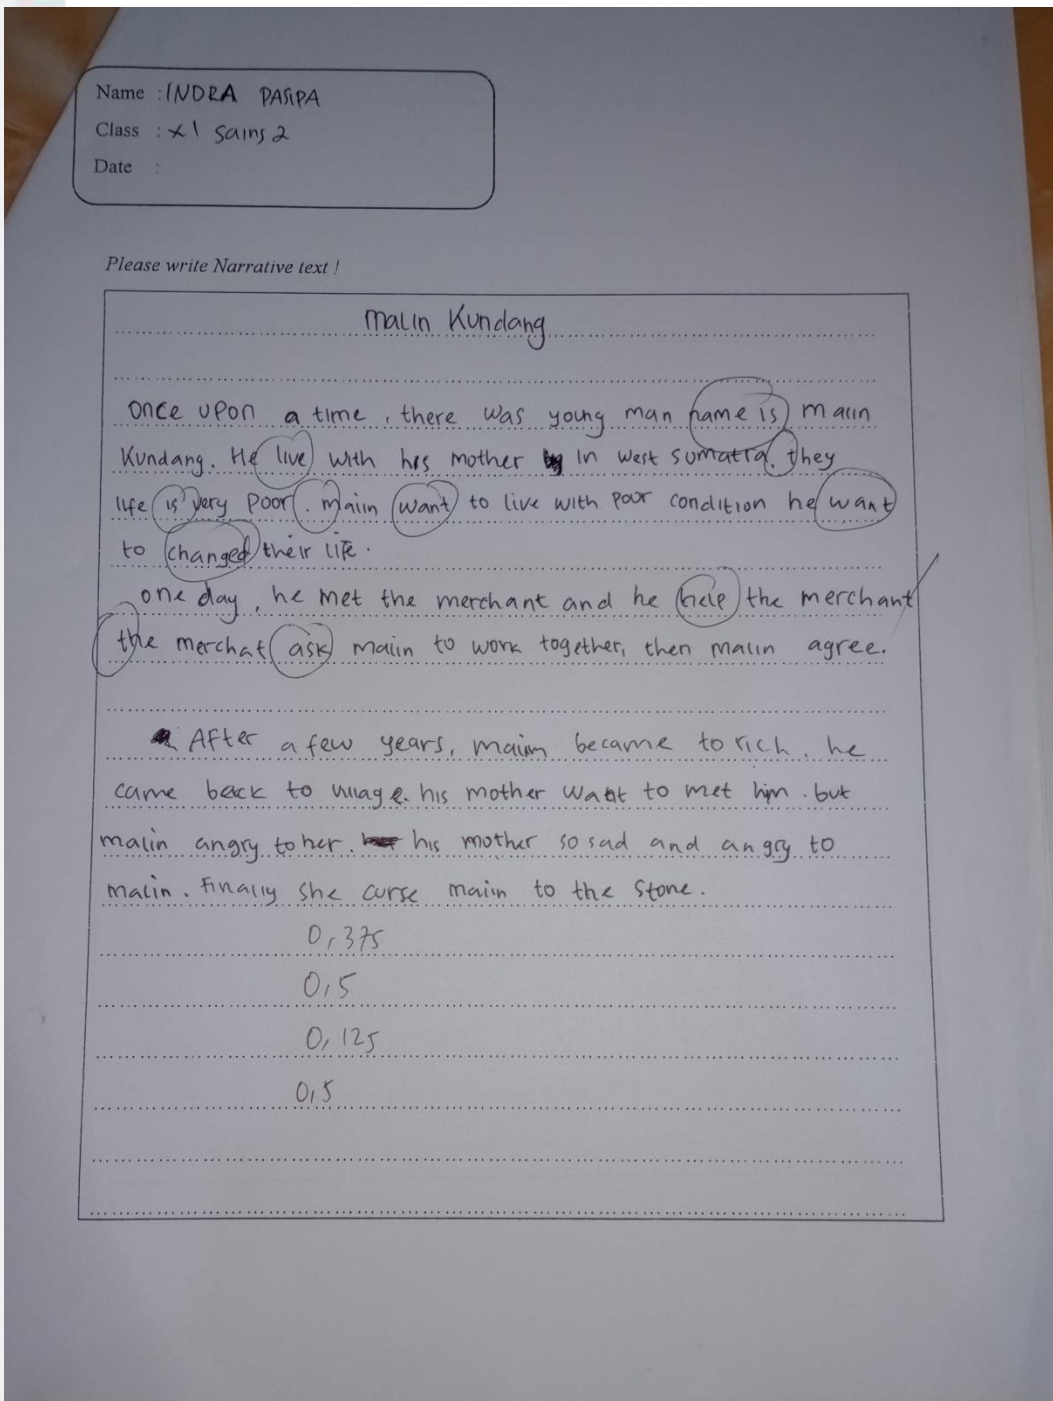 Name : INDRA PASIPA
Class : XI Sains 2
Date :
Please write Narrative text !
Malin Kundang
Once upon a time, there was young man name is malin
Kundang. He live with his mother in west sumatra. they
life is very poor. malin want to live with poor condition he want
to changed their life.
one day, he met the merchant and he help the merchant
the merchat ask malin to work together, then malin agree.
After a few years, malin became to rich. he
came back to village. his mother want to met him. but
malin angry to her. his mother so sad and angry to
malin. Finally she curse malin to the stone.
0,375
0,5
0,125
0,5